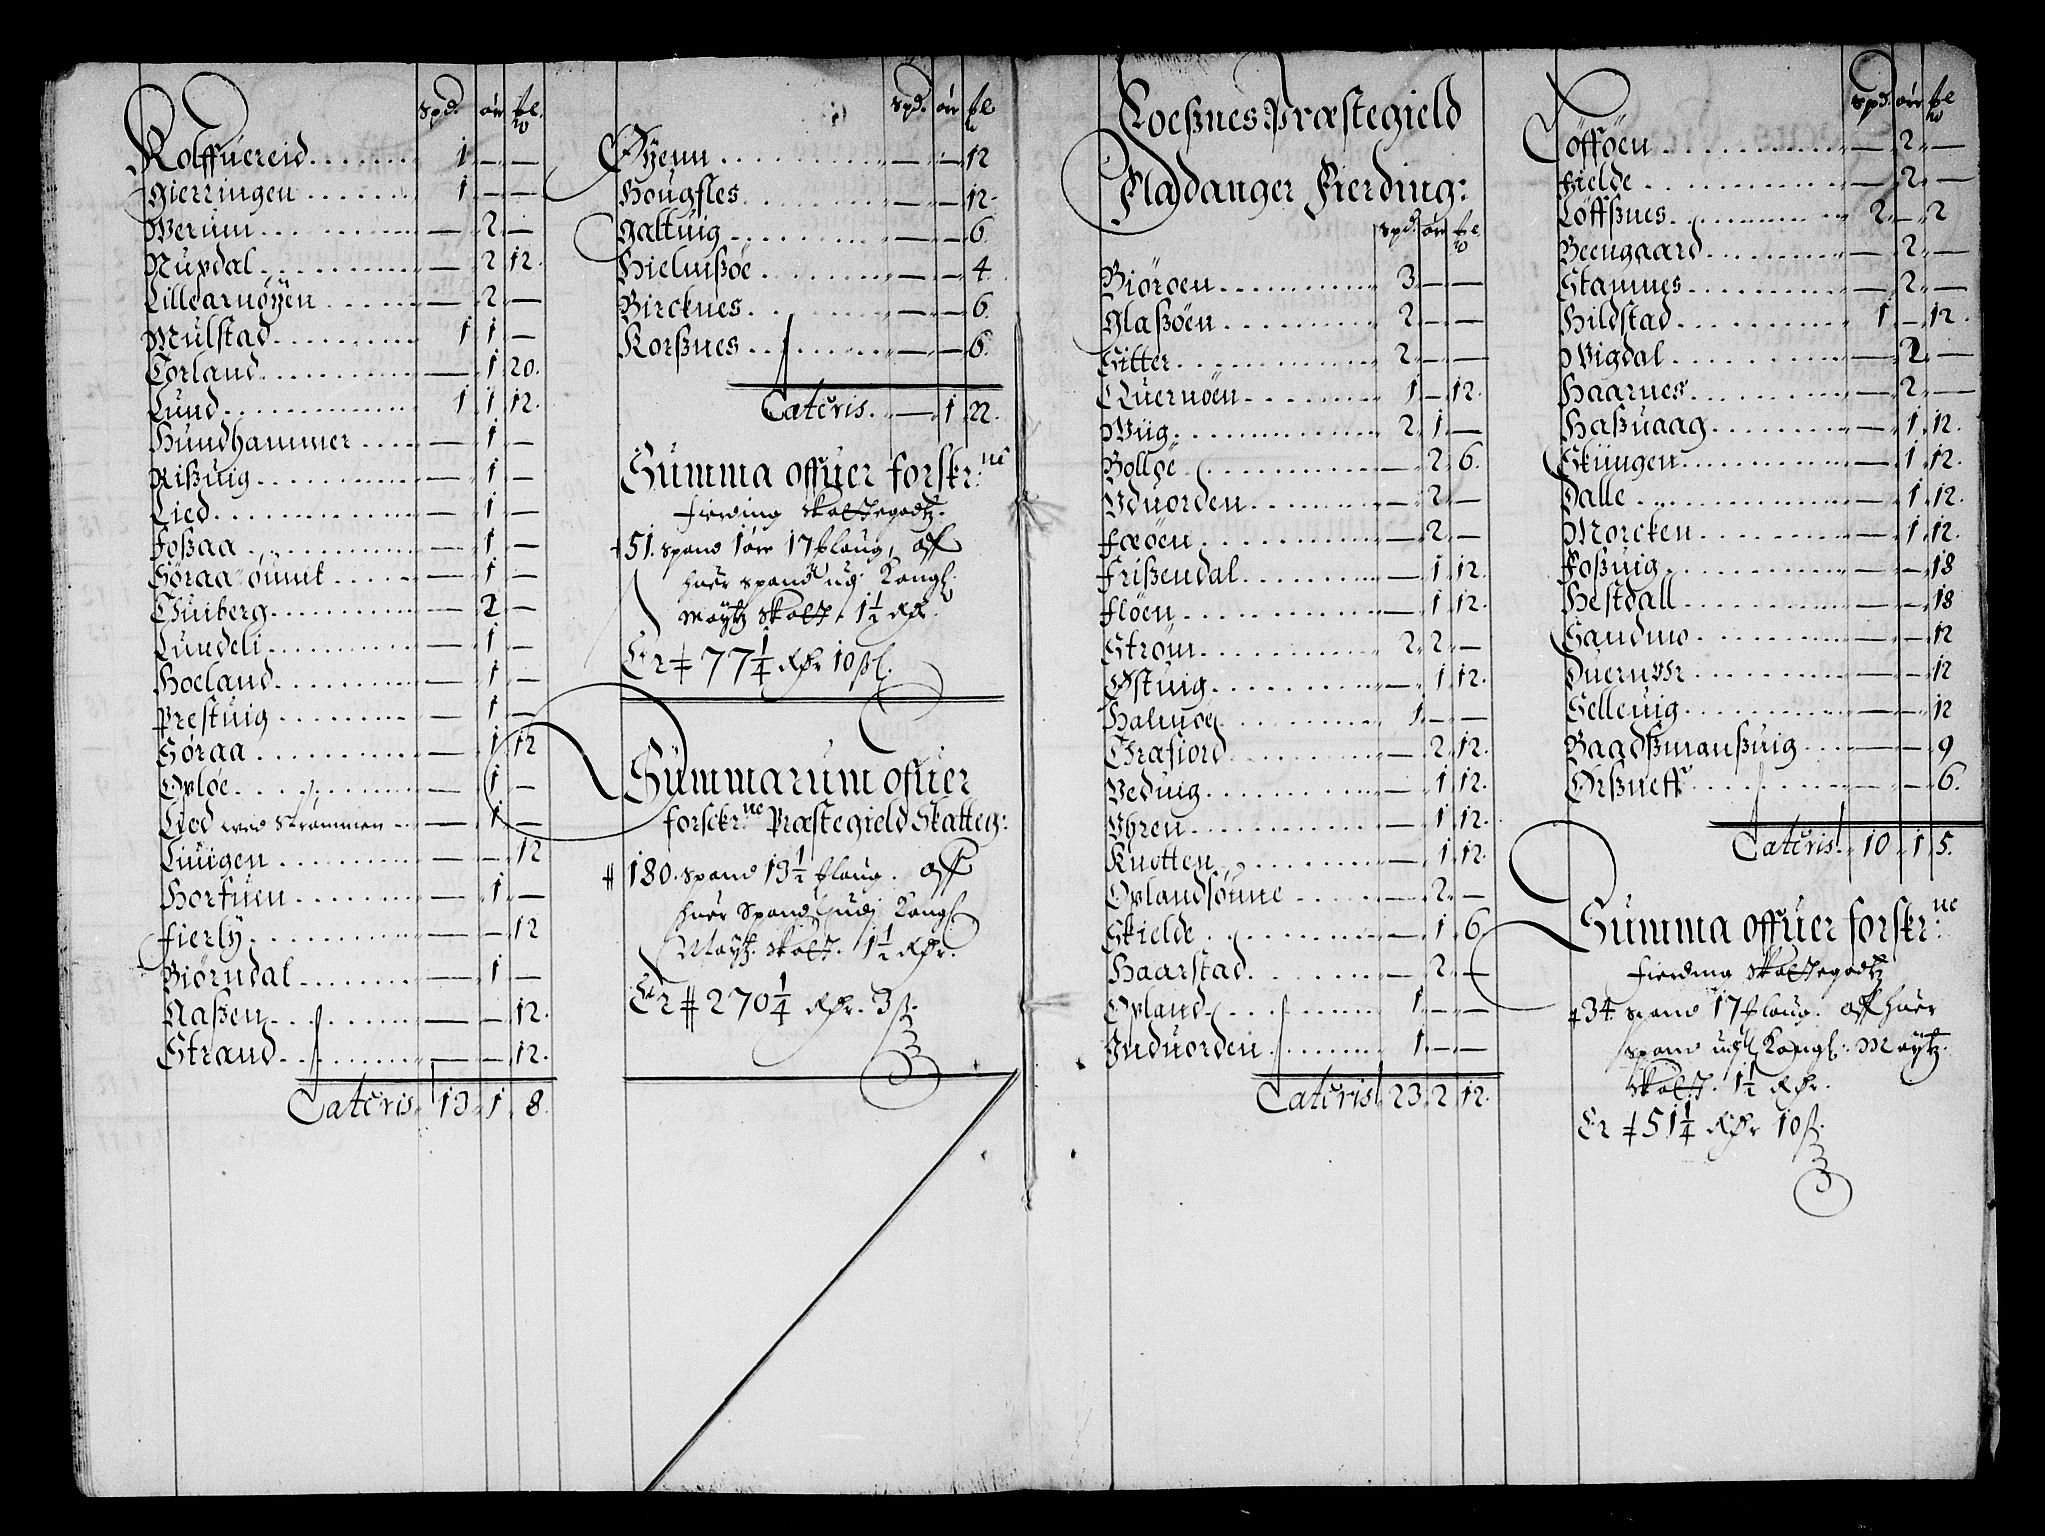 Spd. ør fl.
Kolffuereid 1 — —
Gierringen 1 — —
Werum — 2 —
Nupdal — 2 12
Lillearnøÿen — 2 —
Mulstad 1 1 —
Torland — 1 20
Lund 1 1 12
Hundhammer — 1 —
Rißuig — 1 —
Lied — 1 —
Foßaa — 1 —
Søraa — 1 —
Tuiberg — 2 —
Lundeli — 1 —
Hoeland — 1 —
Prestuig — 1 —
Søraa — 1 12
Opløe — 1 —
Lied wed Strømmen — 1 —
Liuigen — — 12
Horfuen — 1 —
Fierlÿ — — 12
Biørndal — 1 —
Naßen — — 12
Strand — — 12
Lateris 13 1 8
Spd. ør fl
Øÿenn — — 12
Hougsles — — 12
Galtuig — — 6
Hielmßøe — — 4
Bircknes — — 6
Korßnes — — 6
Lateris — 1 22
Summa offuer forskr:ne
Fierding Skattegodtz
51 spand 1 ør 17 fløug, aff
huer spand udj Kongl.
Maÿtz Skatt 1½ Rdr.
Er 77¼ Rdr 10 ßl.
Summarum ofuer
forsckr:ne Præstegield Skatteg:
180 spand 13½ fløug. aff
huer Spand udj Kongl.
Maÿtz Skatt. 1½ Rdr.
Er 270¼ Rdr. 3 ß.
Foeßnes Præstegield
Fladanger Fierding:
Spd. ør fl
Biørøen 3 — —
Glaßøen 2 — —
Sitter 2 — —
Quernøen 1 — 12
Wiig 2 1 —
Bolløe — 2 6
Uduorden — 2 —
Feøen — 2 —
Frißendal — 1 12
Fløen — 1 12
Strøm 2 2 —
Østuig — 1 12
Halmoe 1 — —
Trafiord — 2 12
Veduig — 1 12
Uhren — 1 12
Knotten — 1 12
Oplandsønne — 2 —
Skielde — 1 6
Haarstad — 2 —
Opland 1 — —
Induorden 1 — —
Lateris 23 2 12
Spd. ør fl
Løfføen — 2 —
Fielde — 2 —
Løffßnes 2 — 2
Beengaard — 2 —
Stamnes — 2 —
Hildstad 1 — 12
Wigdal — 2 —
Haarnes — 2 —
Haßuaag — 1 12
Skiingen — 1 12
Dalle — 1 12
Morcken — 1 12
Foßuig — — 18
Hestdall — — 18
Sandmo — — 12
— — 12
Selleuig — — 12
Baadßmanßuig — — 9
Ørßueff — — 6
Lateris 10 1 5
Summa offuer forskr:ne
Fierding Skattegodtz
34 spand 17 fløug. aff huer
spand udj Kongl: Maÿtz
Skatt. 1½ Rdr.
Er 51¼ Rdr 10 ß.